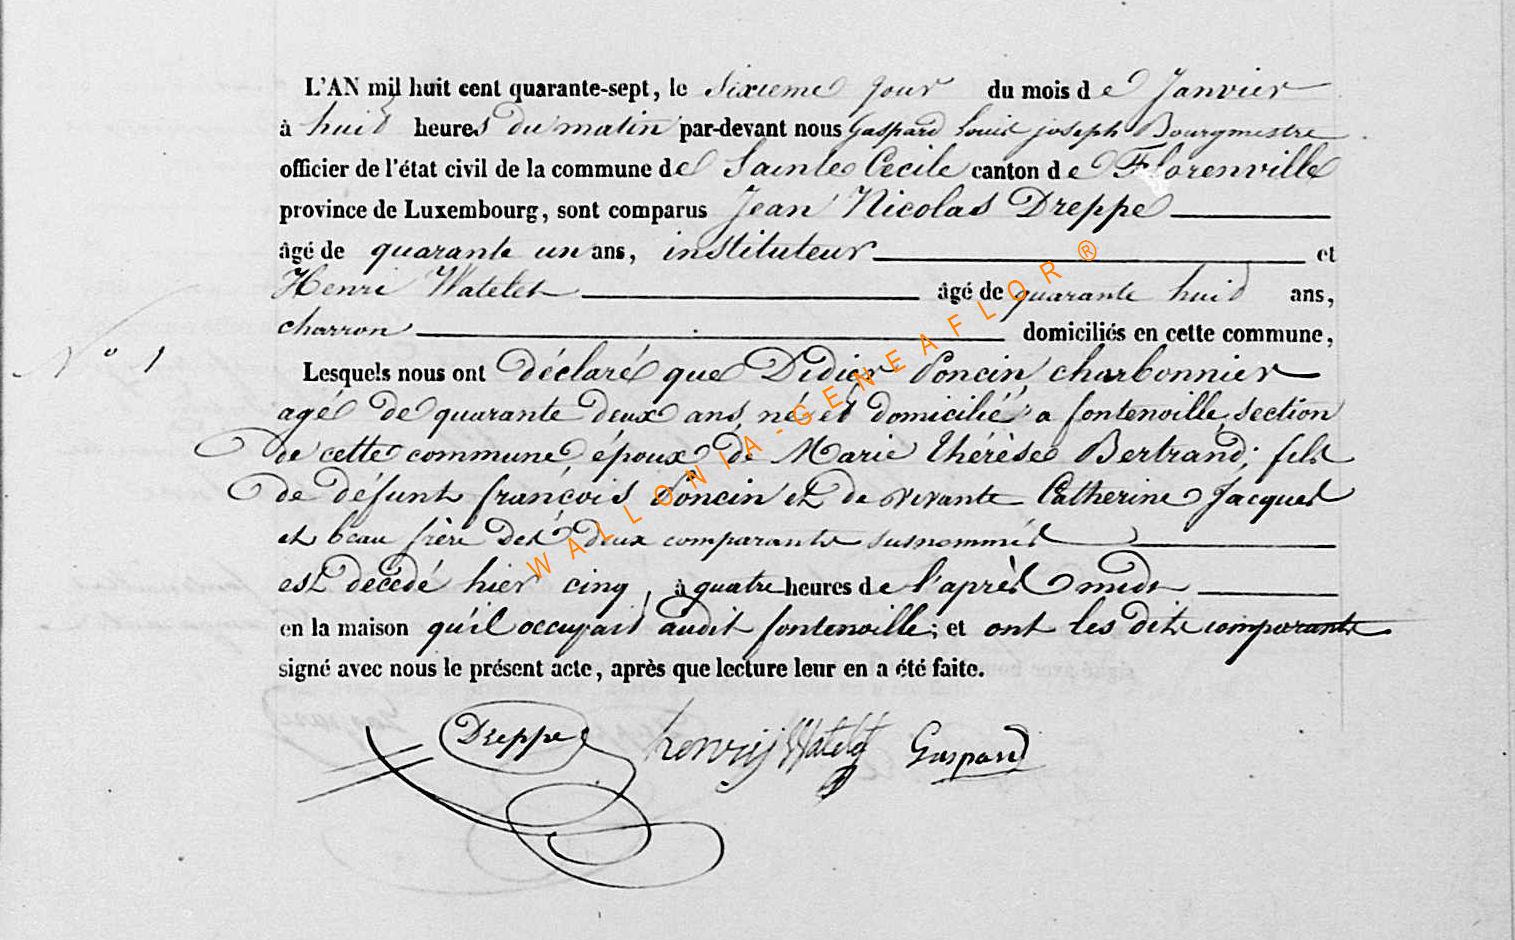 L'AN mil huit cent quarante-sept, le sixieme jour du mois de Janvier
à huit heures du matin par-devant nous Gaspard Louis joseph Bourgmestre
officier de l'état civil de la commune de Sainte Cecile canton de Florenville
province de Luxembourg, sont comparus Jean Nicolas Dreppe
âgé de quarante un ans, instituteur et
Henri Watelet âgé de quarante huit ans,
charron domiciliés en cette commune,
N° 1
Lesquels nous ont déclaré que Didier Poncin, charbonnier
agé de quarante deux ans, né et domicilié a fontenoille, section
de cette commune, époux de Marie thérèse Bertrand; fils
de défunt françois Poncin et de vivante Catherine Jacquet
et beau frère des deux comparants susnommés
est decédé hier cinq, à quatre heures de l'après midi
en la maison qu'il occupait audit fontenoille; et ont les dits comparants
signé avec nous le présent acte, après que lecture leur en a été faite.
Dreppe henrij Watelet Gaspard
WALLONIA-GENEAFLOR®